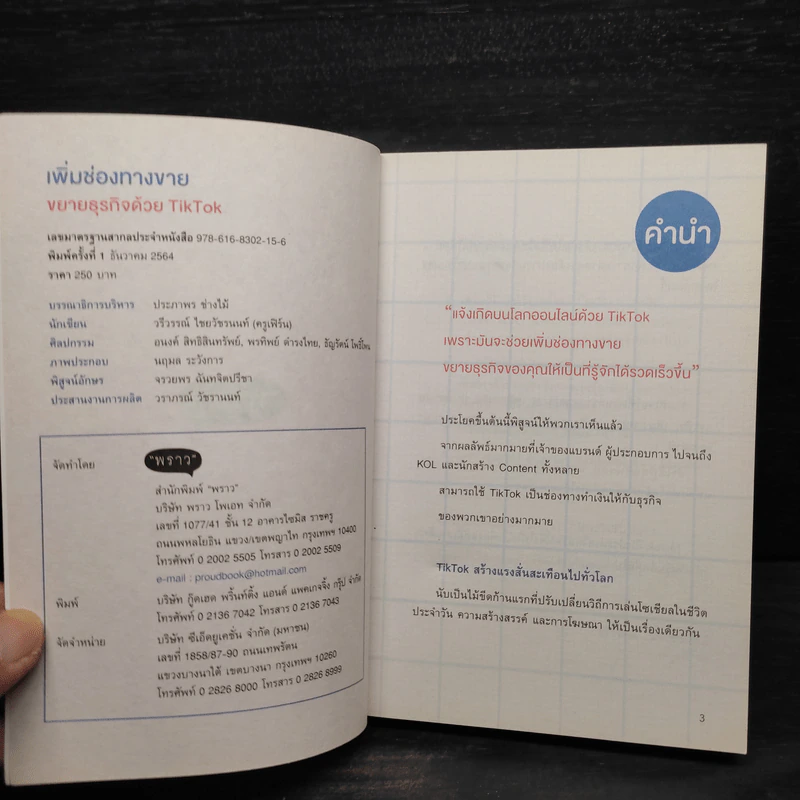 เพิ่มช่องทางขาย
ขยายธุรกิจด้วย TikTok
เลขมาตรฐานสากลประจำหนังสือ 978-616-8302-15-6
พิมพ์ครั้งที่ 1 ธันวาคม 2564
ราคา 250 บาท
บรรณาธิการบริหาร ประภาพร ช่างไม้
นักเขียน วรีวรรณ์ ไชยวัชรนนท์ (ครูเฟิร์น)
ศิลปกรรม อนงค์ สิทธิสินทรัพย์, พรทิพย์ ดำรงไทย, ธัญรัศน์ โพธิ์โพน
ภาพประกอบ นฤมล ระวังการ
พิสูจน์อักษร จรวยพร ฉันทจิตปรีชา
ประสานงานการผลิต วราภรณ์ วัชรานนท์
จัดทำโดย "พราว"
สำนักพิมพ์ "พราว"
บริษัท พราว โพเอท จำกัด
เลขที่ 1077/41 ชั้น 12 อาคารไซมิส ราชครู
ถนนพหลโยธิน แขวง/เขตพญาไท กรุงเทพฯ 10400
โทรศัพท์ 0 2002 5505 โทรสาร 0 2002 5509
e-mail : proudbook@hotmail.com
พิมพ์ บริษัท กู๊ดเฮด พริ้นท์ติ้ง แอนด์ แพคเกจจิ้ง กรุ๊ป จำกัด
โทรศัพท์ 0 2136 7042 โทรสาร 0 2136 7043
จัดจำหน่าย บริษัท ซีเอ็ดยูเคชั่น จำกัด (มหาชน)
เลขที่ 1858/87-90 ถนนเทพรัตน
แขวงบางนาใต้ เขตบางนา กรุงเทพฯ 10260
โทรศัพท์ 0 2826 8000 โทรสาร 0 2826 8999
คำนำ
"แจ้งเกิดบนโลกออนไลน์ด้วย TikTok
เพราะมันจะช่วยเพิ่มช่องทางขาย
ขยายธุรกิจของคุณให้เป็นที่รู้จักได้รวดเร็วขึ้น"
ประโยคขึ้นต้นนี้พิสูจน์ให้พวกเราเห็นแล้ว
จากผลลัพธ์มากมายที่เจ้าของแบรนด์ ผู้ประกอบการ ไปจนถึง
KOL และนักสร้าง Content ทั้งหลาย
สามารถใช้ TikTok เป็นช่องทางทำเงินให้กับธุรกิจ
ของพวกเขาอย่างมากมาย
TikTok สร้างแรงสั่นสะเทือนไปทั่วโลก
นับเป็นไม้ขีดก้านแรกที่ปรับเปลี่ยนวิถีการเล่นโซเชียลในชีวิต
ประจำวัน ความสร้างสรรค์ และการโฆษณา ให้เป็นเรื่องเดียวกัน
3